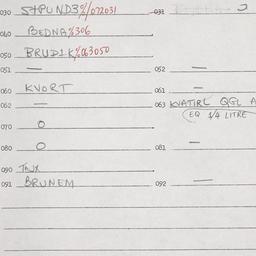 030 STPUND3%/072031 031
040 BEDNA%306
050 BRUD1K%063050
051 — 052 —
060 KVORT 061 —
062 — 063 KVATIRL QGL A
(EQ 1/4 LITRE
070 O
080 O 081 —
090 TAUX
091 BRUNEM 092 —